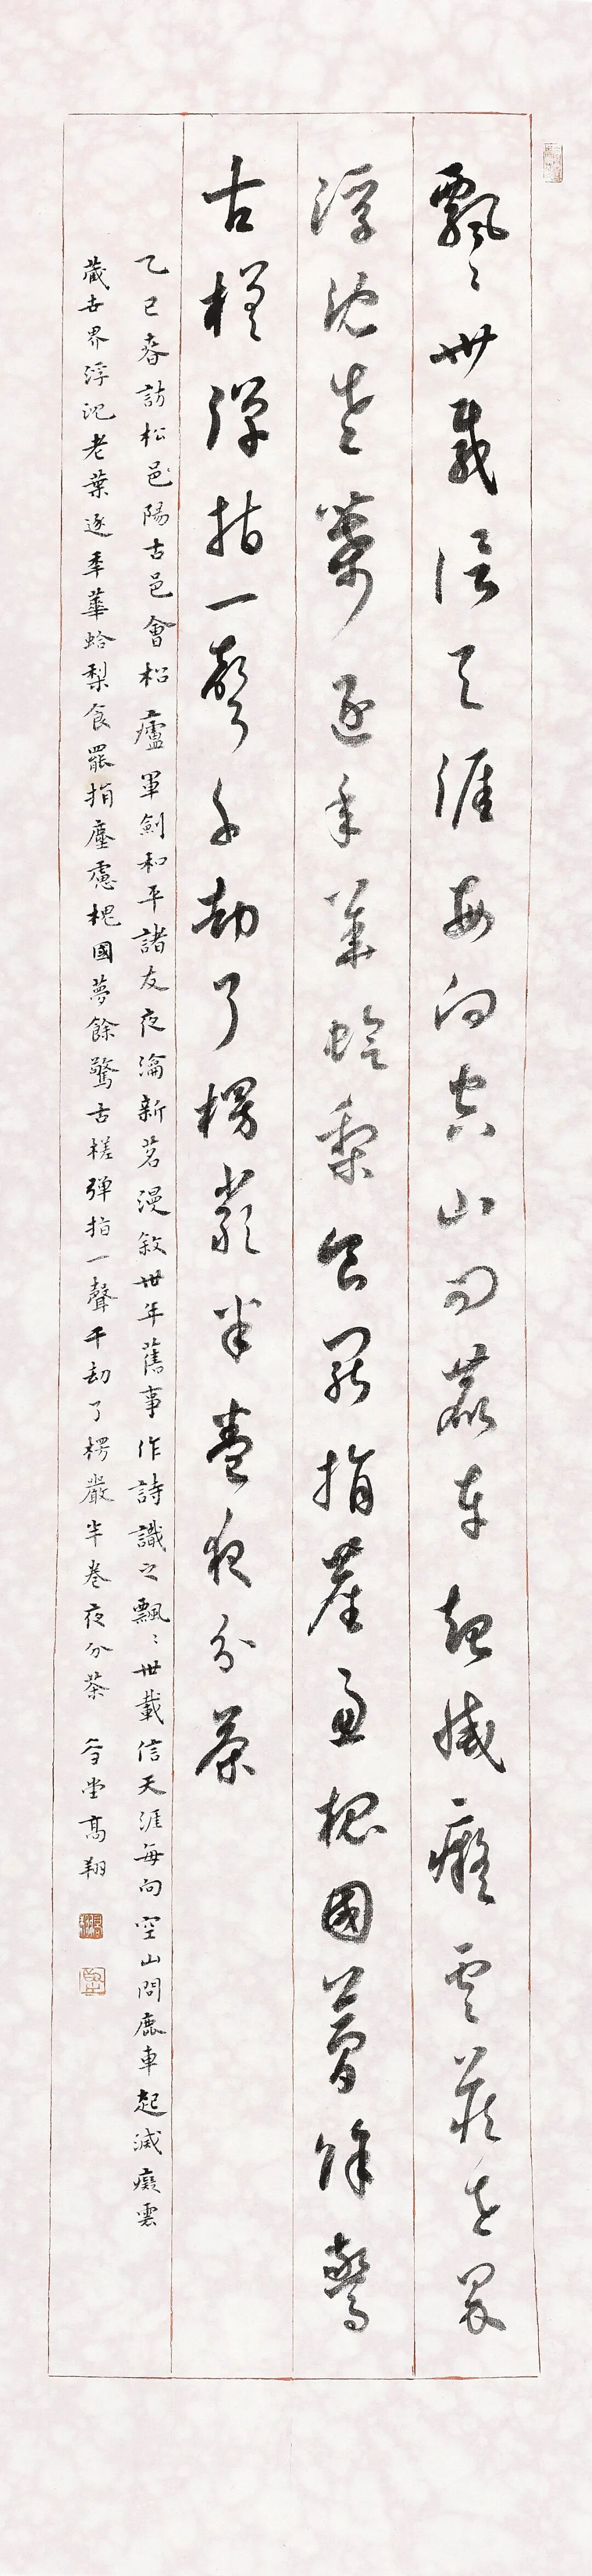 飄〻卅載信天涯每向空山問鹿車起滅癡雲藏世界
浮沈老葉逐年華蛤梨食罷捐塵慮槐國夢餘驚
古槎彈指一聲千劫了楞嚴半卷夜分茶
乙巳春訪松邑陽古邑會松廬軍劍和平諸友夜瀹新茗漫敘卅年舊事作詩識之飄〻卅載信天涯每向空山問鹿車起滅癡雲
藏世界浮沈老葉逐年華蛤梨食罷捐塵慮槐國夢餘驚古槎彈指一聲千劫了楞嚴半卷夜分茶 堂高翔